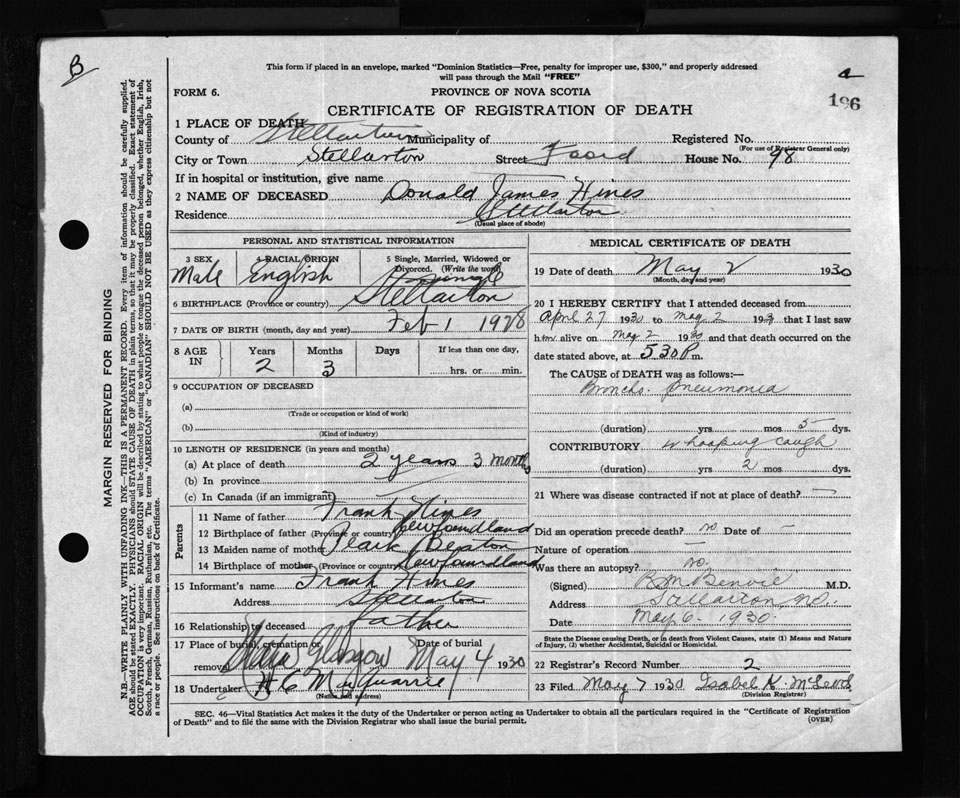 B
a
196
This form if placed in an envelope, marked "Dominion Statistics—Free, penalty for improper use, $300," and properly addressed
will pass through the Mail "FREE"
FORM 6. PROVINCE OF NOVA SCOTIA
CERTIFICATE OF REGISTRATION OF DEATH
1 PLACE OF DEATH
County of Stellarton Municipality of Registered No.
(For use of Registrar General only)
City or Town Stellarton Street Foord House No. 98
If in hospital or institution, give name
2 NAME OF DECEASED Donald James Hines
Residence Stellarton
(Usual place of abode)
PERSONAL AND STATISTICAL INFORMATION
3 SEX 4 RACIAL ORIGIN 5 Single, Married, Widowed or
Divorced. (Write the word)
Male English Single
6 BIRTHPLACE (Province or country) Stellarton
7 DATE OF BIRTH (month, day and year) Feb 1 1928
8 AGE IN Years Months Days If less than one day,
2 3 hrs. or min.
9 OCCUPATION OF DECEASED
(a)
(Trade or occupation or kind of work)
(b)
(Kind of industry)
10 LENGTH OF RESIDENCE (in years and months)
(a) At place of death 2 years 3 months
(b) In province
(c) In Canada (if an immigrant)
Parents
11 Name of father Frank Hines
12 Birthplace of father (Province or country) Newfoundland
13 Maiden name of mother Pearl Beaton
14 Birthplace of mother (Province or country) Newfoundland
15 Informant's name Frank Hines
Address Stellarton
16 Relationship to deceased Father
17 Place of burial, cremation or Date of burial
removal New Glasgow May 4 1930
18 Undertaker H C MacQuarrie
(Name and address)
MEDICAL CERTIFICATE OF DEATH
19 Date of death May 2 1930
(Month, day and year)
20 I HEREBY CERTIFY that I attended deceased from
April 27 1930 to May 2 193 that I last saw
him alive on May 2 1930 and that death occurred on the
date stated above, at 5 30 P. m.
The CAUSE of DEATH was as follows:—
Broncho. Pneumonia
(duration) yrs mos 5 dys.
CONTRIBUTORY Whooping cough
(duration) yrs 2 mos dys.
21 Where was disease contracted if not at place of death? —
Did an operation precede death? no Date of —
Nature of operation —
Was there an autopsy? no.
(Signed) B.M. Benvie M.D.
Address Stellarton, N.S.
Date May 6 - 1930.
State the Disease causing Death, or in death from Violent Causes, state (1) Means and Nature
of Injury, (2) whether Accidental, Suicidal or Homicidal.
22 Registrar's Record Number 2
23 Filed May 7 1930 Isabel K. McLeod
(Division Registrar)
SEC. 46—Vital Statistics Act makes it the duty of the Undertaker or person acting as Undertaker to obtain all the particulars required in the "Certificate of Registration
of Death" and to file the same with the Division Registrar who shall issue the burial permit. (OVER)
MARGIN RESERVED FOR BINDING
N.B.—WRITE PLAINLY WITH UNFADING INK—THIS IS A PERMANENT RECORD. Every item of information should be carefully supplied.
AGE should be stated EXACTLY. PHYSICIANS should STATE CAUSE OF DEATH in plain terms, so that it may be properly classified. Exact statement of
OCCUPATION is very important. RACIAL ORIGIN will be described by stating to what people or tongue the deceased person belonged, whether English, Irish,
Scotch, French, German, Russian, Ruthenian, etc. The terms "AMERICAN" or "CANADIAN" SHOULD NOT BE USED as they express citizenship but not
a race or people. See instructions on back of Certificate.